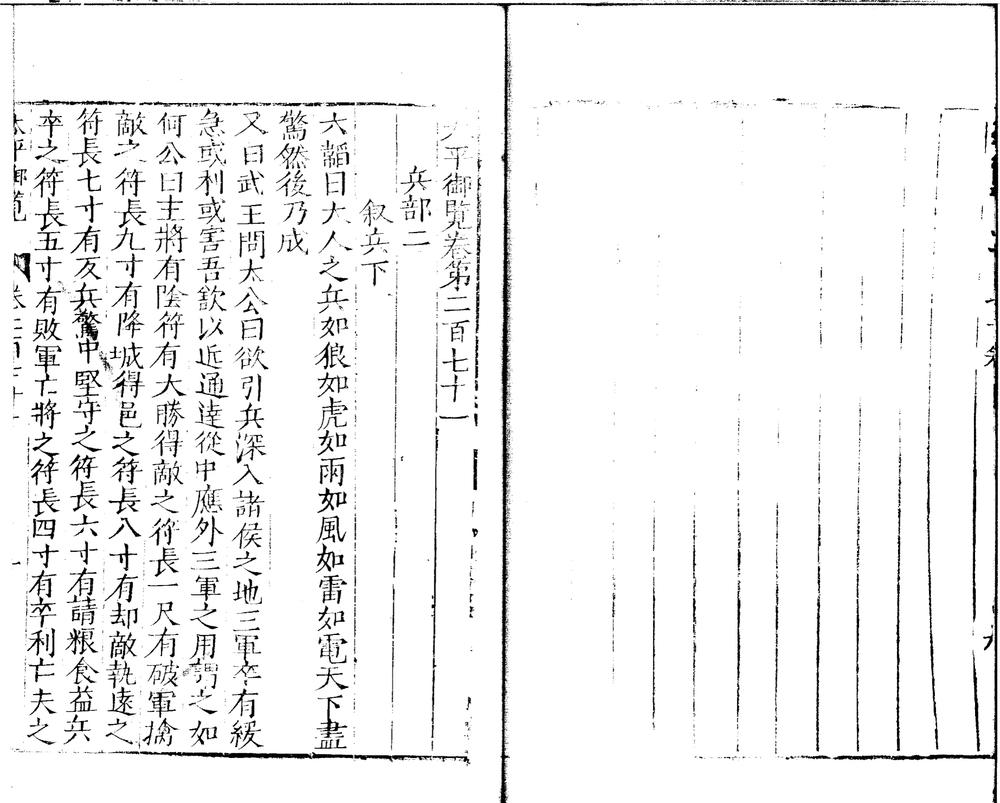 太平御覧卷第二百七十一
兵部二
叙兵下
六韜曰大人之兵如狼如虎如雨如風如雷如電天下盡
驚然後乃成
又曰武王問太公曰欲引兵深入諸侯之地三軍卒有緩
急或利或害吾欲以近通逺從中應外三軍之用謂之如
何公曰主將有陰符有大勝得敵之符長一尺有破軍擒
敵之符長九寸有降城得邑之符長八寸有却敵執逺之
符長七寸有反兵驚中堅守之符長六寸有請粮食益兵
卒之符長五寸有敗軍亡將之符長四寸有卒利亡夫之
太平御覧 卷二百七十一 一